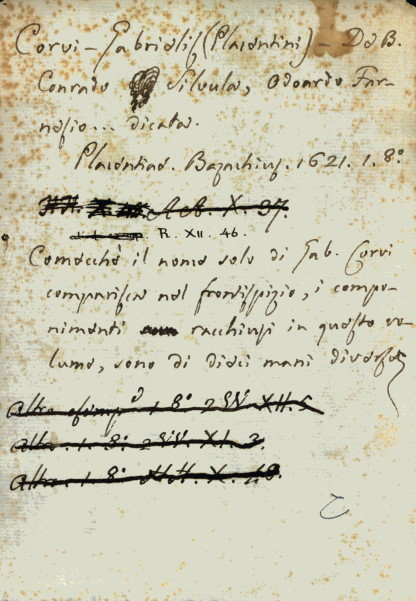 Corvi - Gabrielis (Placentini) - De B.
Conrado Silvula, Odoardo Far-
nesio... dicata.
Placentiae. Bazachius. 1621. 1. 8.º
A A. X. 37.
R. XII. 46.
Comecchè il nome solo di Gab. Corvi
comparisca nel frontispizio, i compo-
nimenti racchiusi in questo vo-
lume, sono di dieci mani diverse
Altro esemp.º 1. 8.º 2 VV. XII. 5
Altro. 1. 8.º 2 VV. XI. 3.
Altro. 1. 8.º H H. X. 48.